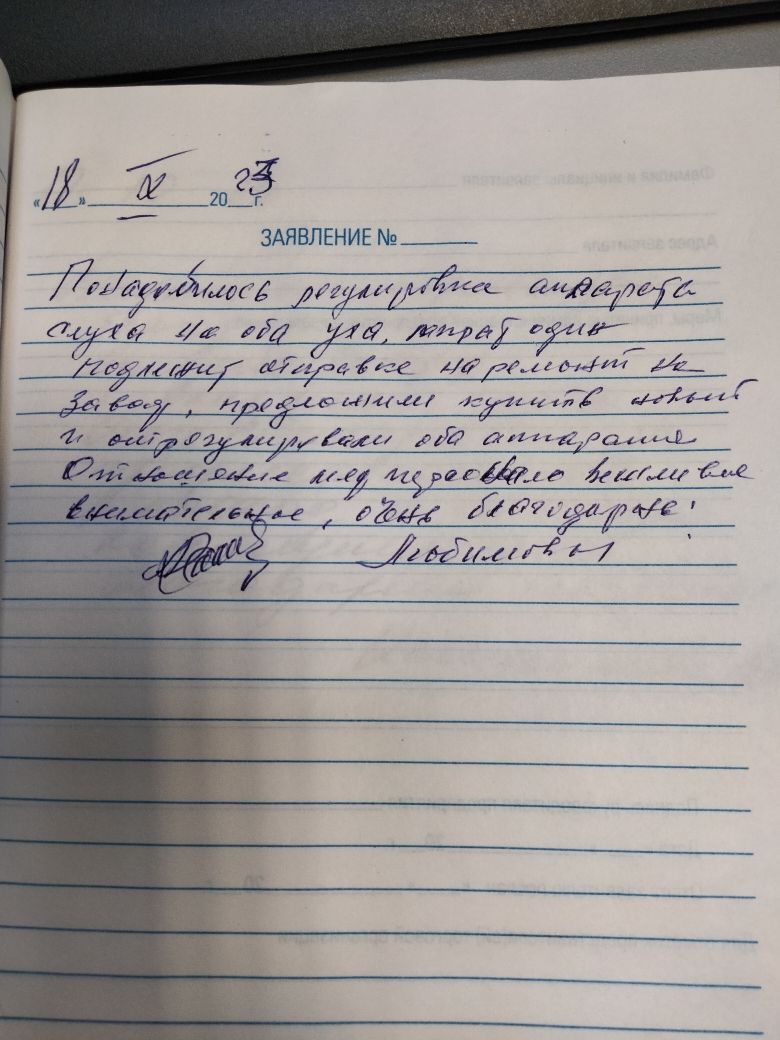 «18» IX 2023 г.
ЗАЯВЛЕНИЕ №
Понадобилось регулировка аппарата
слуха на оба уха, апарат один
подлежит отправке на ремонт на
завод, предложили купить новый
и отрегулировали оба аппарата
Отношение мед персонала вежливое
внимательное, очень благодарны.
Любимовы